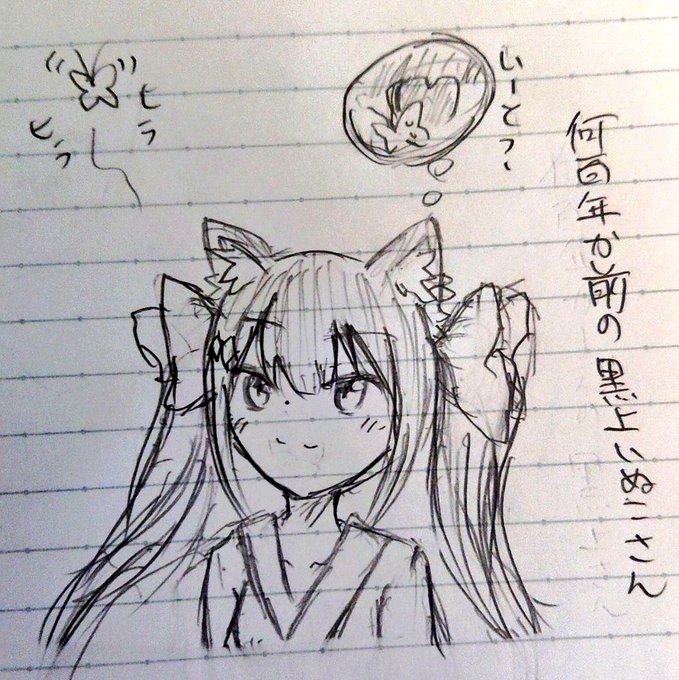 何百年か前の黒上いぬこさん
ヒラ
ヒラ